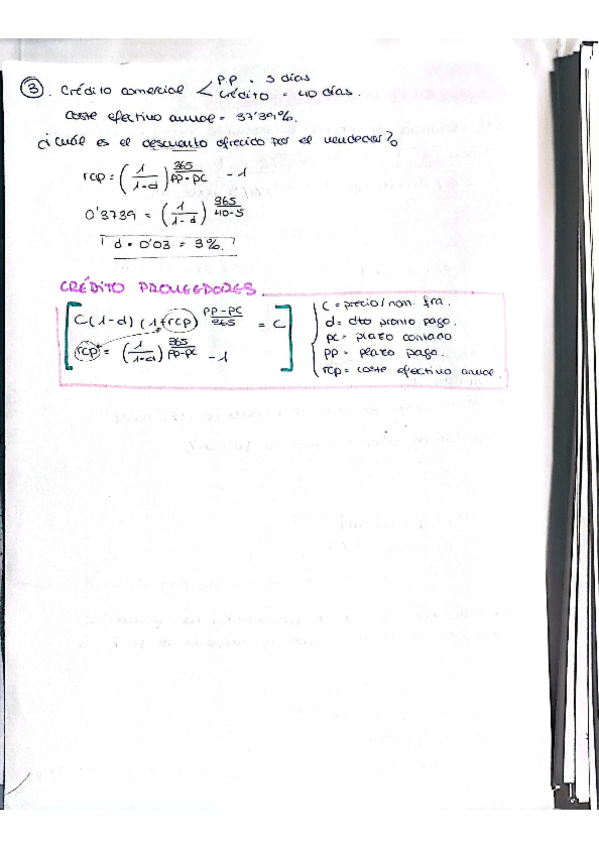 ③. Crédito comercial < P.P = 5 días
Crédito = 40 días.
Coste efectivo anual = 37'39%.
¿Cuál es el descuento ofrecido por el vendedor?
rcp = (1/1-d)^365/PP-PC - 1
0'3739 = (1/1-d)^365/40-5
d = 0'03 = 3%.
CRÉDITO PROVEEDORES.
C(1-d)(1+rcp)^PP-PC/365 = C
rcp = (1/1-d)^365/PP-PC - 1
C = precio/nom. fra.
d = dto pronto pago.
pc = plazo contado
pp = plazo pago.
rcp = coste efectivo anual.